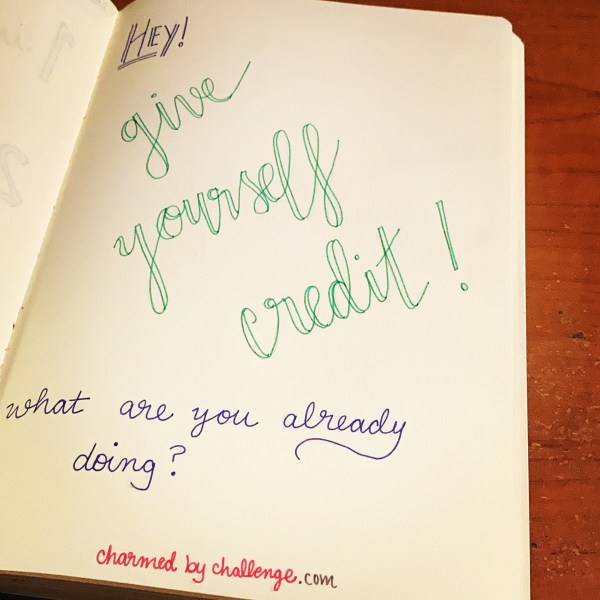 HEY!
give
yourself
credit!
what are you already
doing?
charmed by challenge.com